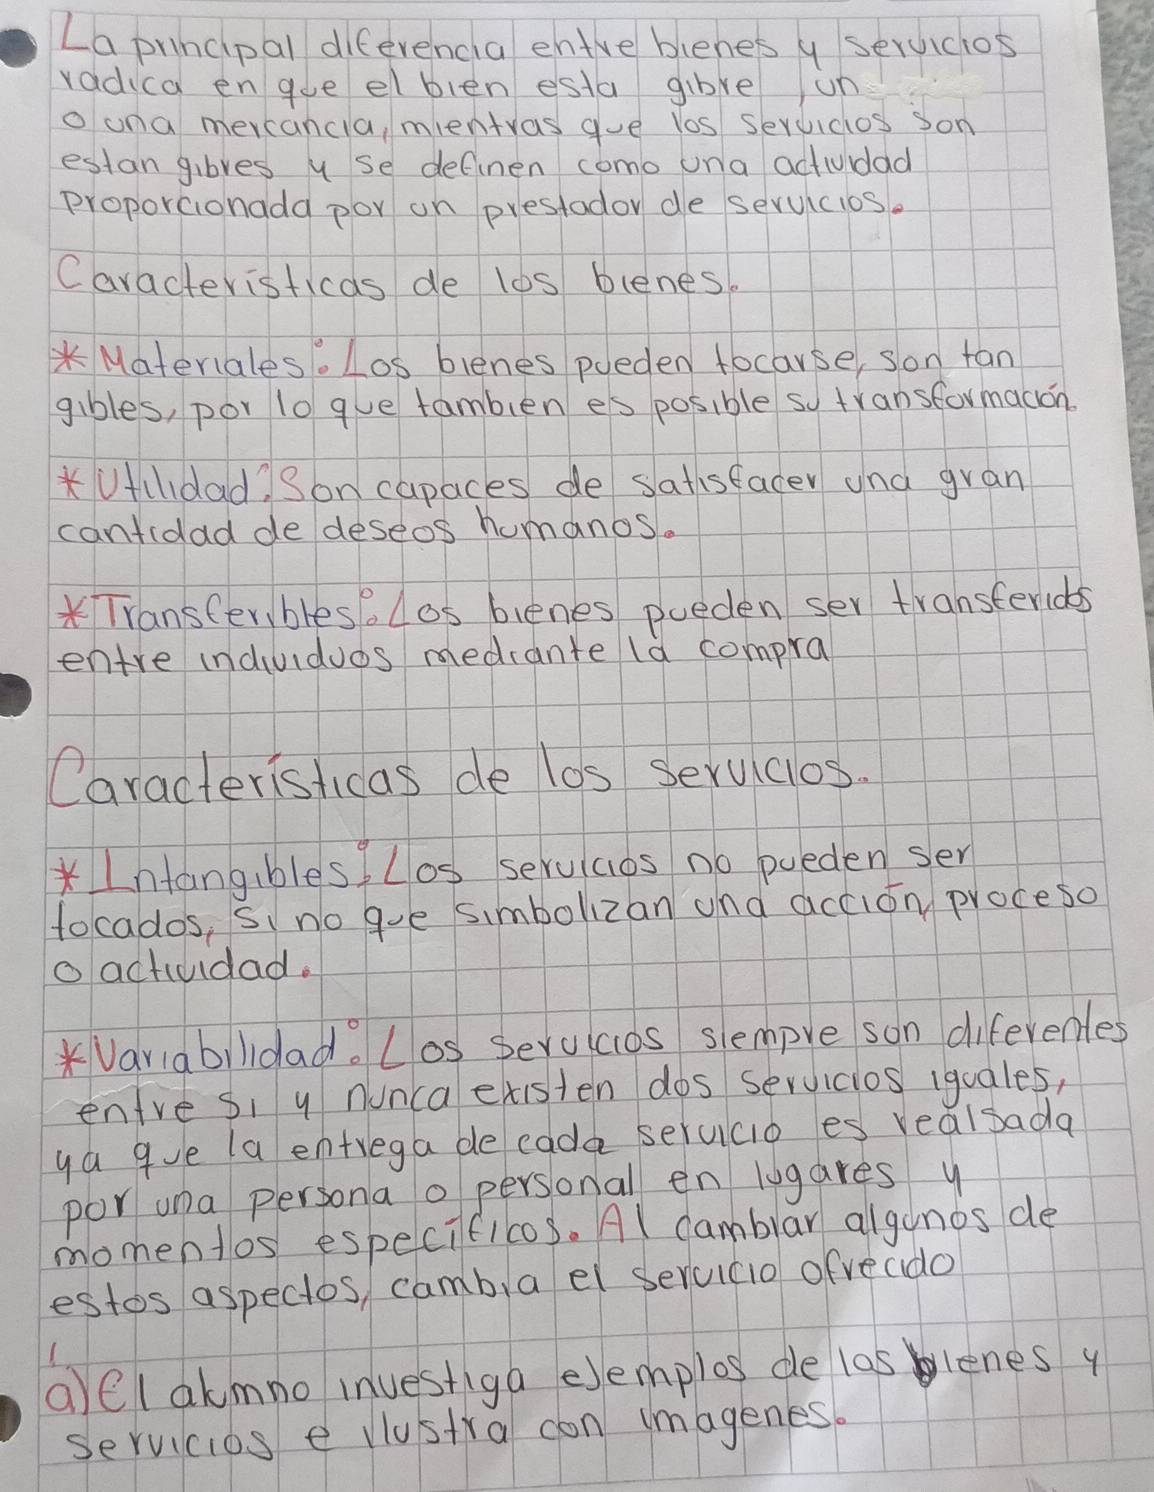 La principal diferencia entre bienes y servicios
radica en que el bien esta gibre, un
o una mercancia, mientras que los servicios son
estan gibres y se definen como una actividad
proporcionada por un prestador de servicios.
Caracteristicas de los bienes.
* Materiales: Los bienes pueden tocarse, son tan
gibles, por lo que tambien es posible su transformación.
* Utilidad: Son capaces de satisfacer una gran
cantidad de deseos humanos.
* Transferibles: Los bienes pueden ser transferidos
entre individuos mediante la compra
Características de los servicios.
* Intangibles: Los servicios no pueden ser
tocados, si no que simbolizan una acción, proceso
o actividad.
* Variabilidad: Los servicios siempre son diferentes
entre si y nunca existen dos servicios iguales,
ya que la entrega de cada servicio es realsada
por una persona o personal en lugares y
momentos especificos. Al cambiar algunos de
estos aspectos, cambia el servicio ofrecido
a) El alumno investiga ejemplos de los bienes y
servicios e ilustra con imagenes.